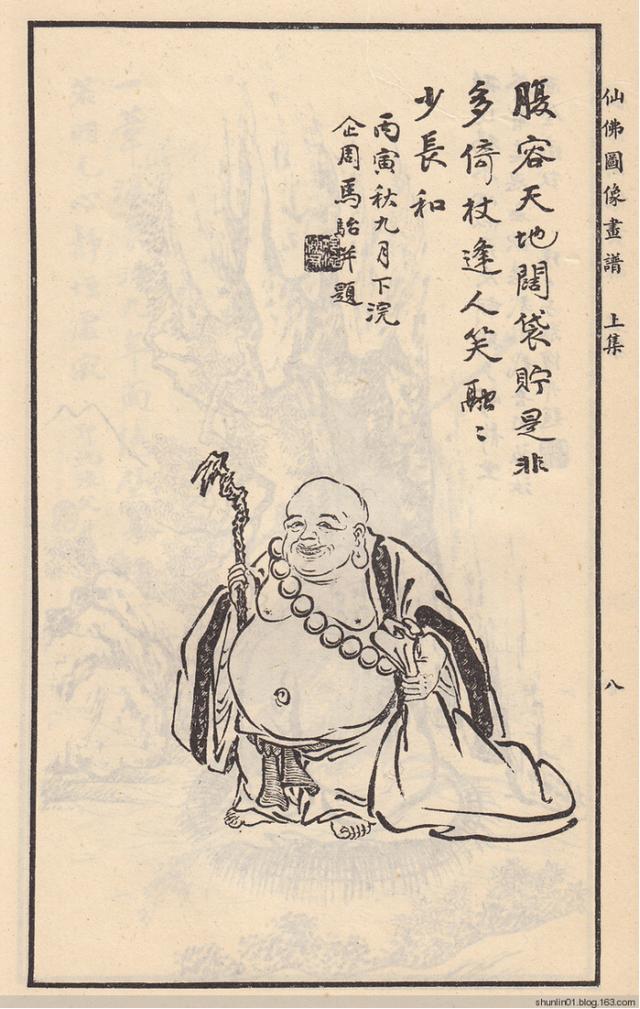 仙佛圖像畫譜 上集
八
腹容天地闊袋貯是非
多倚杖逢人笑融〻
少長和
丙寅秋九月下浣
企周馬駘并題
shunlin01.blog.163.com